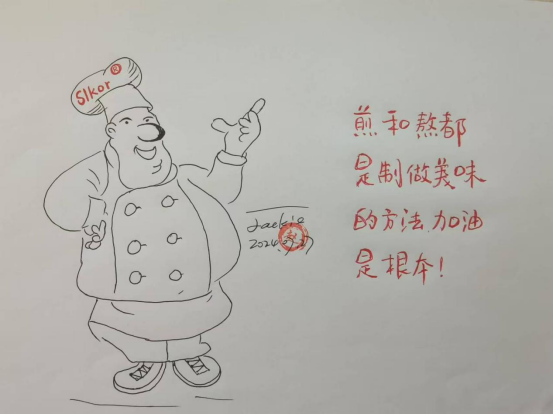 Slkor®
煎和熬都
是制做美味
的方法,加油
是根本!
Jackie